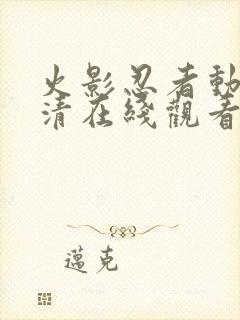 火影忍者動
清在綫觀看
邁克